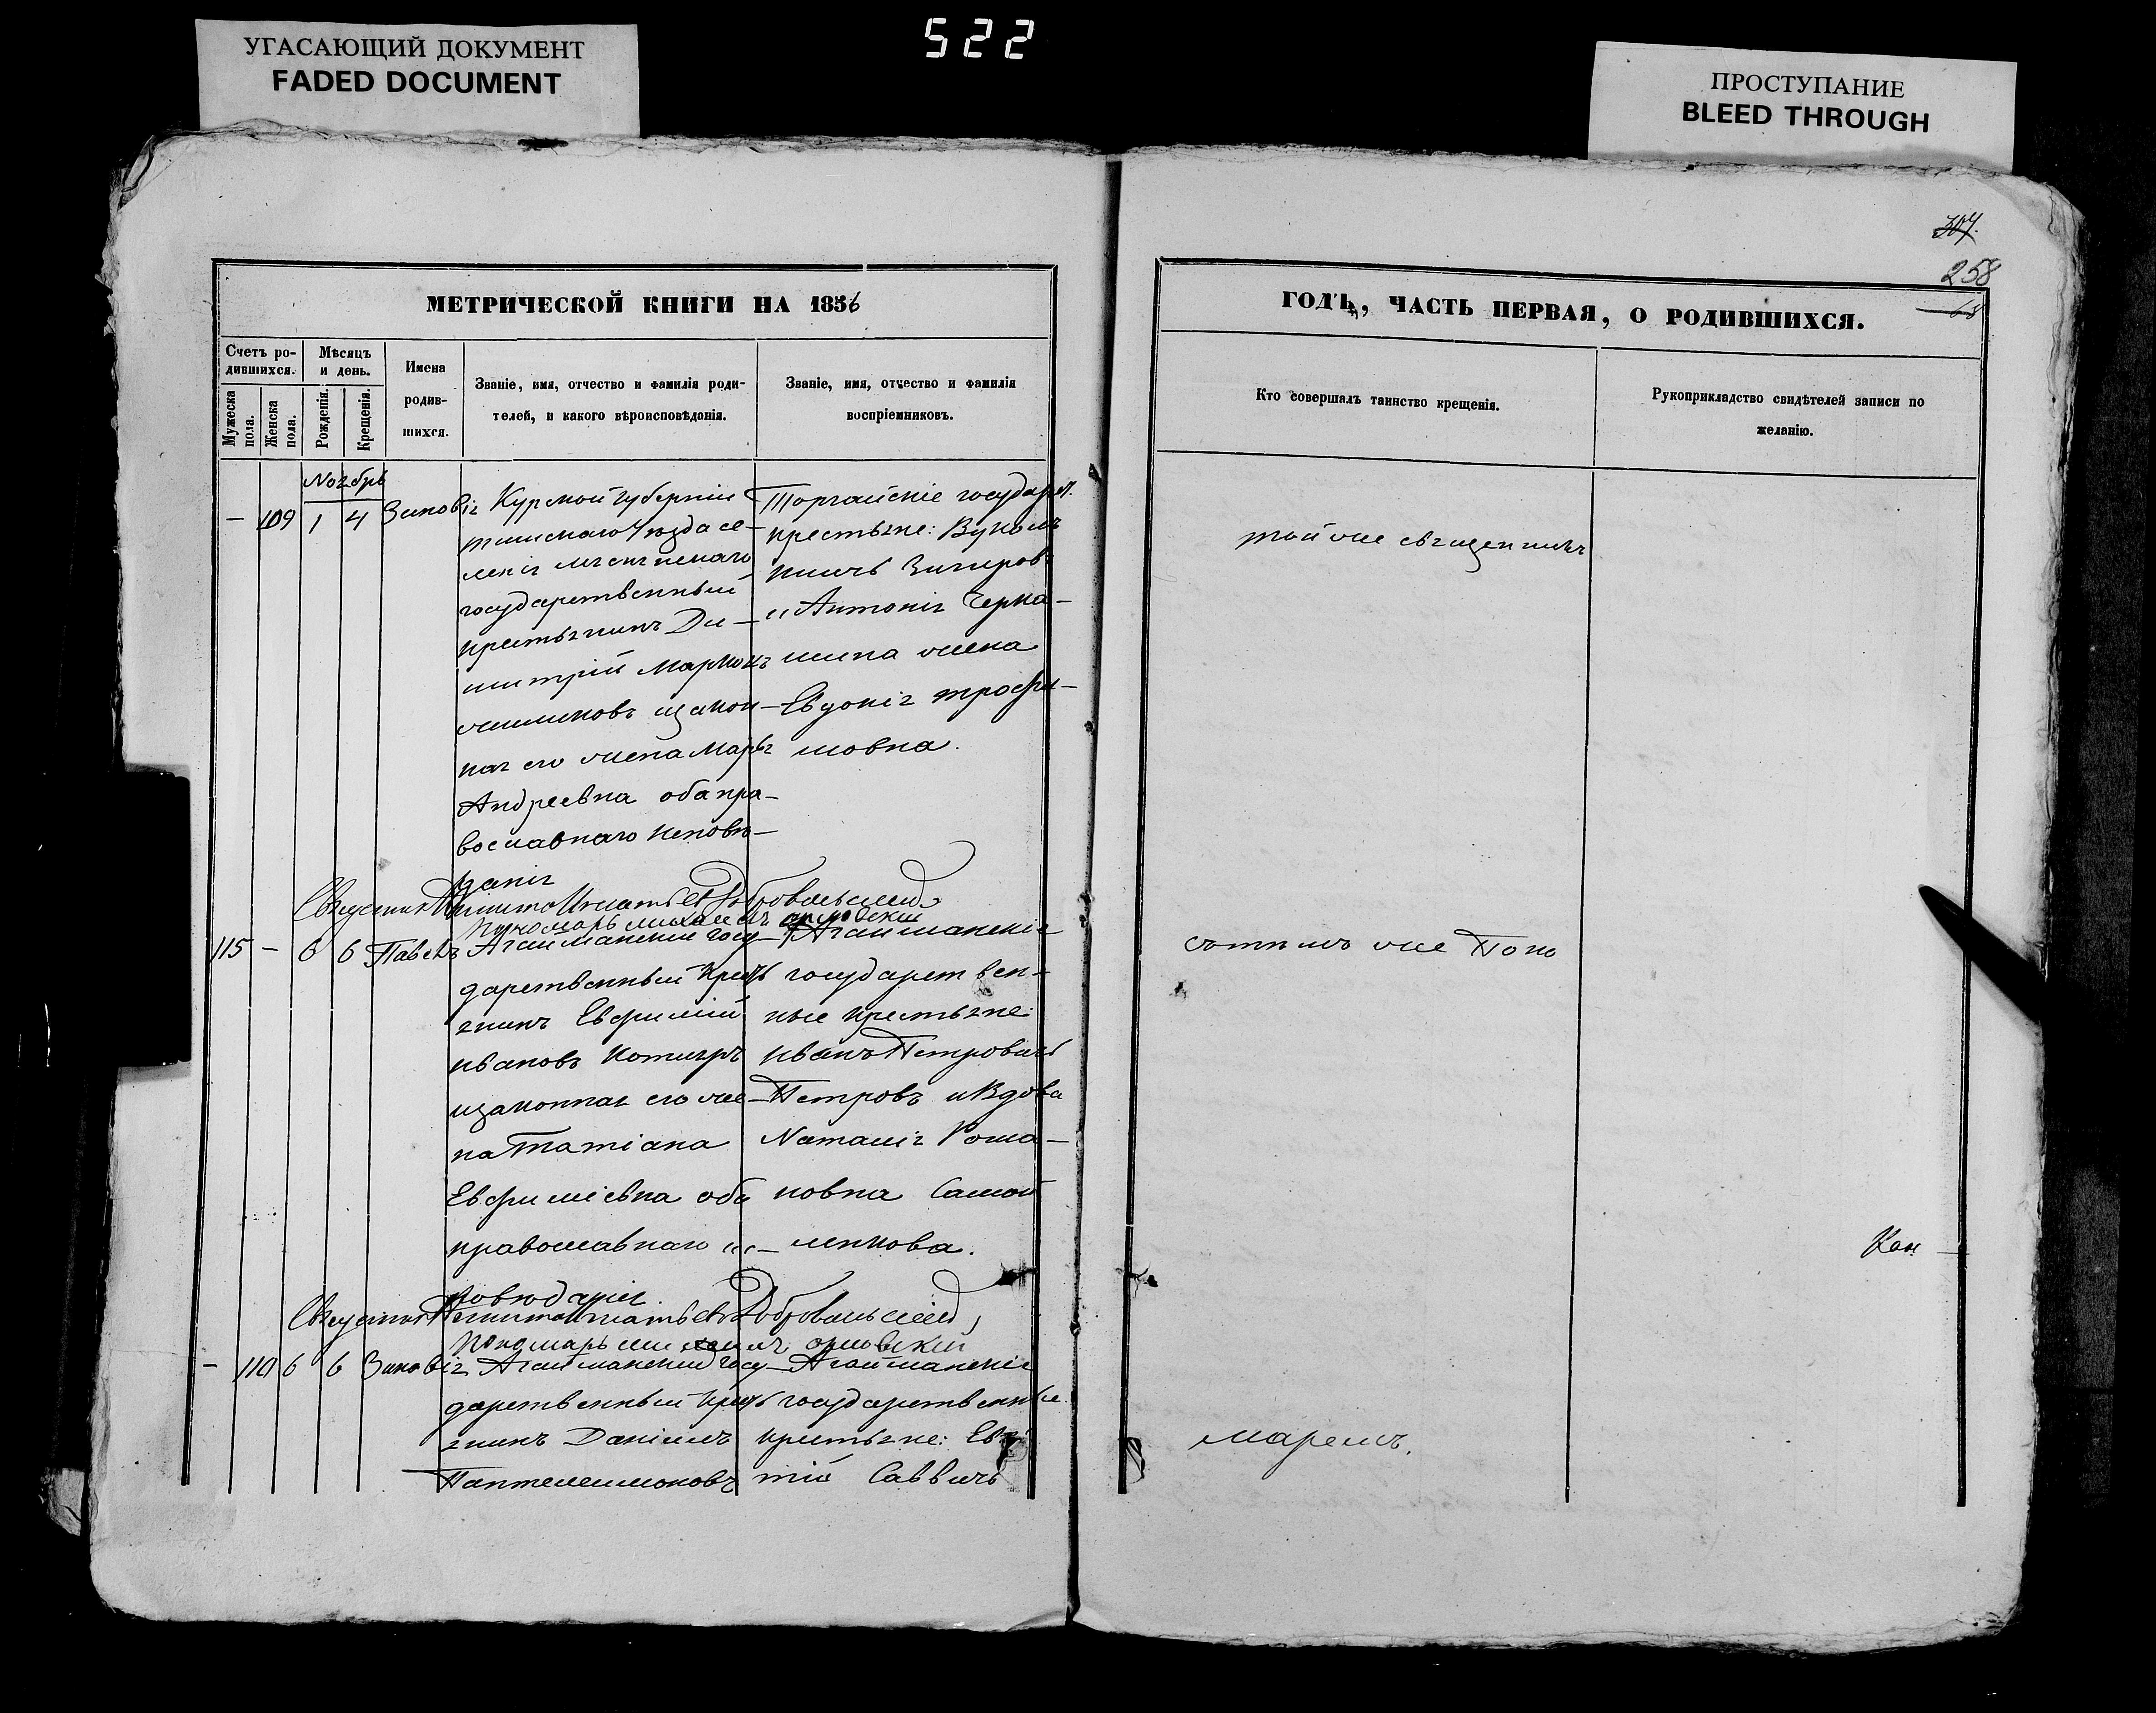 УГАСАЮЩИЙ ДОКУМЕНТ
FADED DOCUMENT
522
ПРОСТУПАНИЕ
BLEED THROUGH
МЕТРИЧЕСКОЙ КНИГИ НА 1856
Счетъ ро-
дившихся.
Мужеска
пола.
Женска
пола.
Мѣсяцъ
и день.
Рожденія.
Крещенія.
Имена
родив-
шихся.
Званіе, имя, отчество и фамилія роди-
телей, и какого вѣроисповѣданія.
Званіе, имя, отчество и фамилія
воспріемниковъ.
Ноябрь
— 109 1 4 Зиновія
Курской губерніи
уѣзда се-
ленія
государственный
крестьянинъ Ди-
митрій
законн-
ная его жена Марья
Андреевна оба пра-
вославнаго исповѣ-
данія
Торгайскіе государст.
крестьяне: Вуколъ
и Антонія Черка-
шина жена
Евдокія Трофи-
мовна.
Священникъ Никита Игнатьевъ Добровольскій
Пономарь Михаилъ Орловскій
115 — 6 6 Павелъ
Агайманскій госу-
дарственный кресть
янинъ Евфимій
Ивановъ
изаконная его же-
на Татіана
Евфиміевна оба
православнаго ис-
повѣданія.
Агайманскіе
государствен-
ные крестьяне:
Иванъ Петровичъ
Петровъ и Вдова
Наталія Рома-
новна Самой
ленкова.
Священникъ Никита Игнатьевъ Добровольскій,
Пономарь Михаилъ Орловскій
— 110 6 6 Зиновія
Агайманскій госу-
дарственный кресть
янинъ Даніилъ
Пантелеимоновъ
Агайманскіе
государственные
крестьяне: Евс
тій Саввичъ
307.
258
68
ГОДЪ, ЧАСТЬ ПЕРВАЯ, О РОДИВШИХСЯ.
Кто совершалъ таинство крещенія.
Рукоприкладство свидѣтелей записи по
желанію.
той же священникъ
сътимъ же Поно
маремъ.